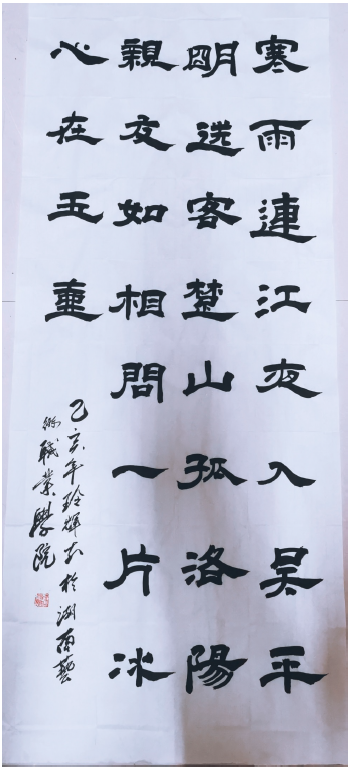 寒雨連江夜入吴平
明送客楚山孤洛陽
親友如相問一片冰
心在玉壺
己亥年玲輝书於湖南藝
術職業學院